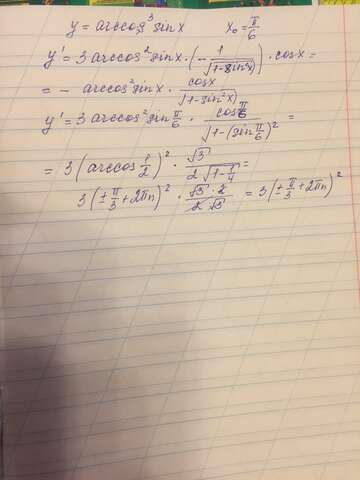 y = arccos³ sin x    x₀ = π/6
y' = 3 arccos² sin x · (- 1/√(1-sin²x)) · cos x =
= - arccos² sin x · cos x/√(1-sin²x)
y' = 3 arccos² sin π/6 · cos π/6/√(1-(sin π/6)²) =
= 3 (arccos 1/2)² · √3/(2√(1-1/4)) =
3 (± π/3 + 2πn)² · (√3 · 2)/(2 √3) = 3 (± π/3 + 2πn)²